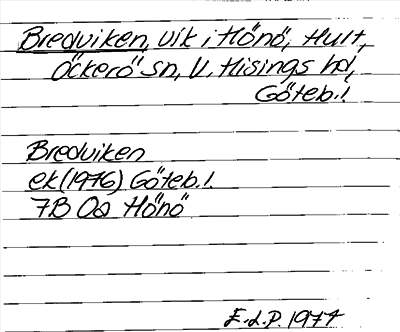 Bredviken, vik i Hönö, Hult,
Öckerö sn, V. Hisings hd,
Göteb.l.
Bredviken
ek (1976) Göteb.l.
7B 0a Hönö
E.L.P. 1977